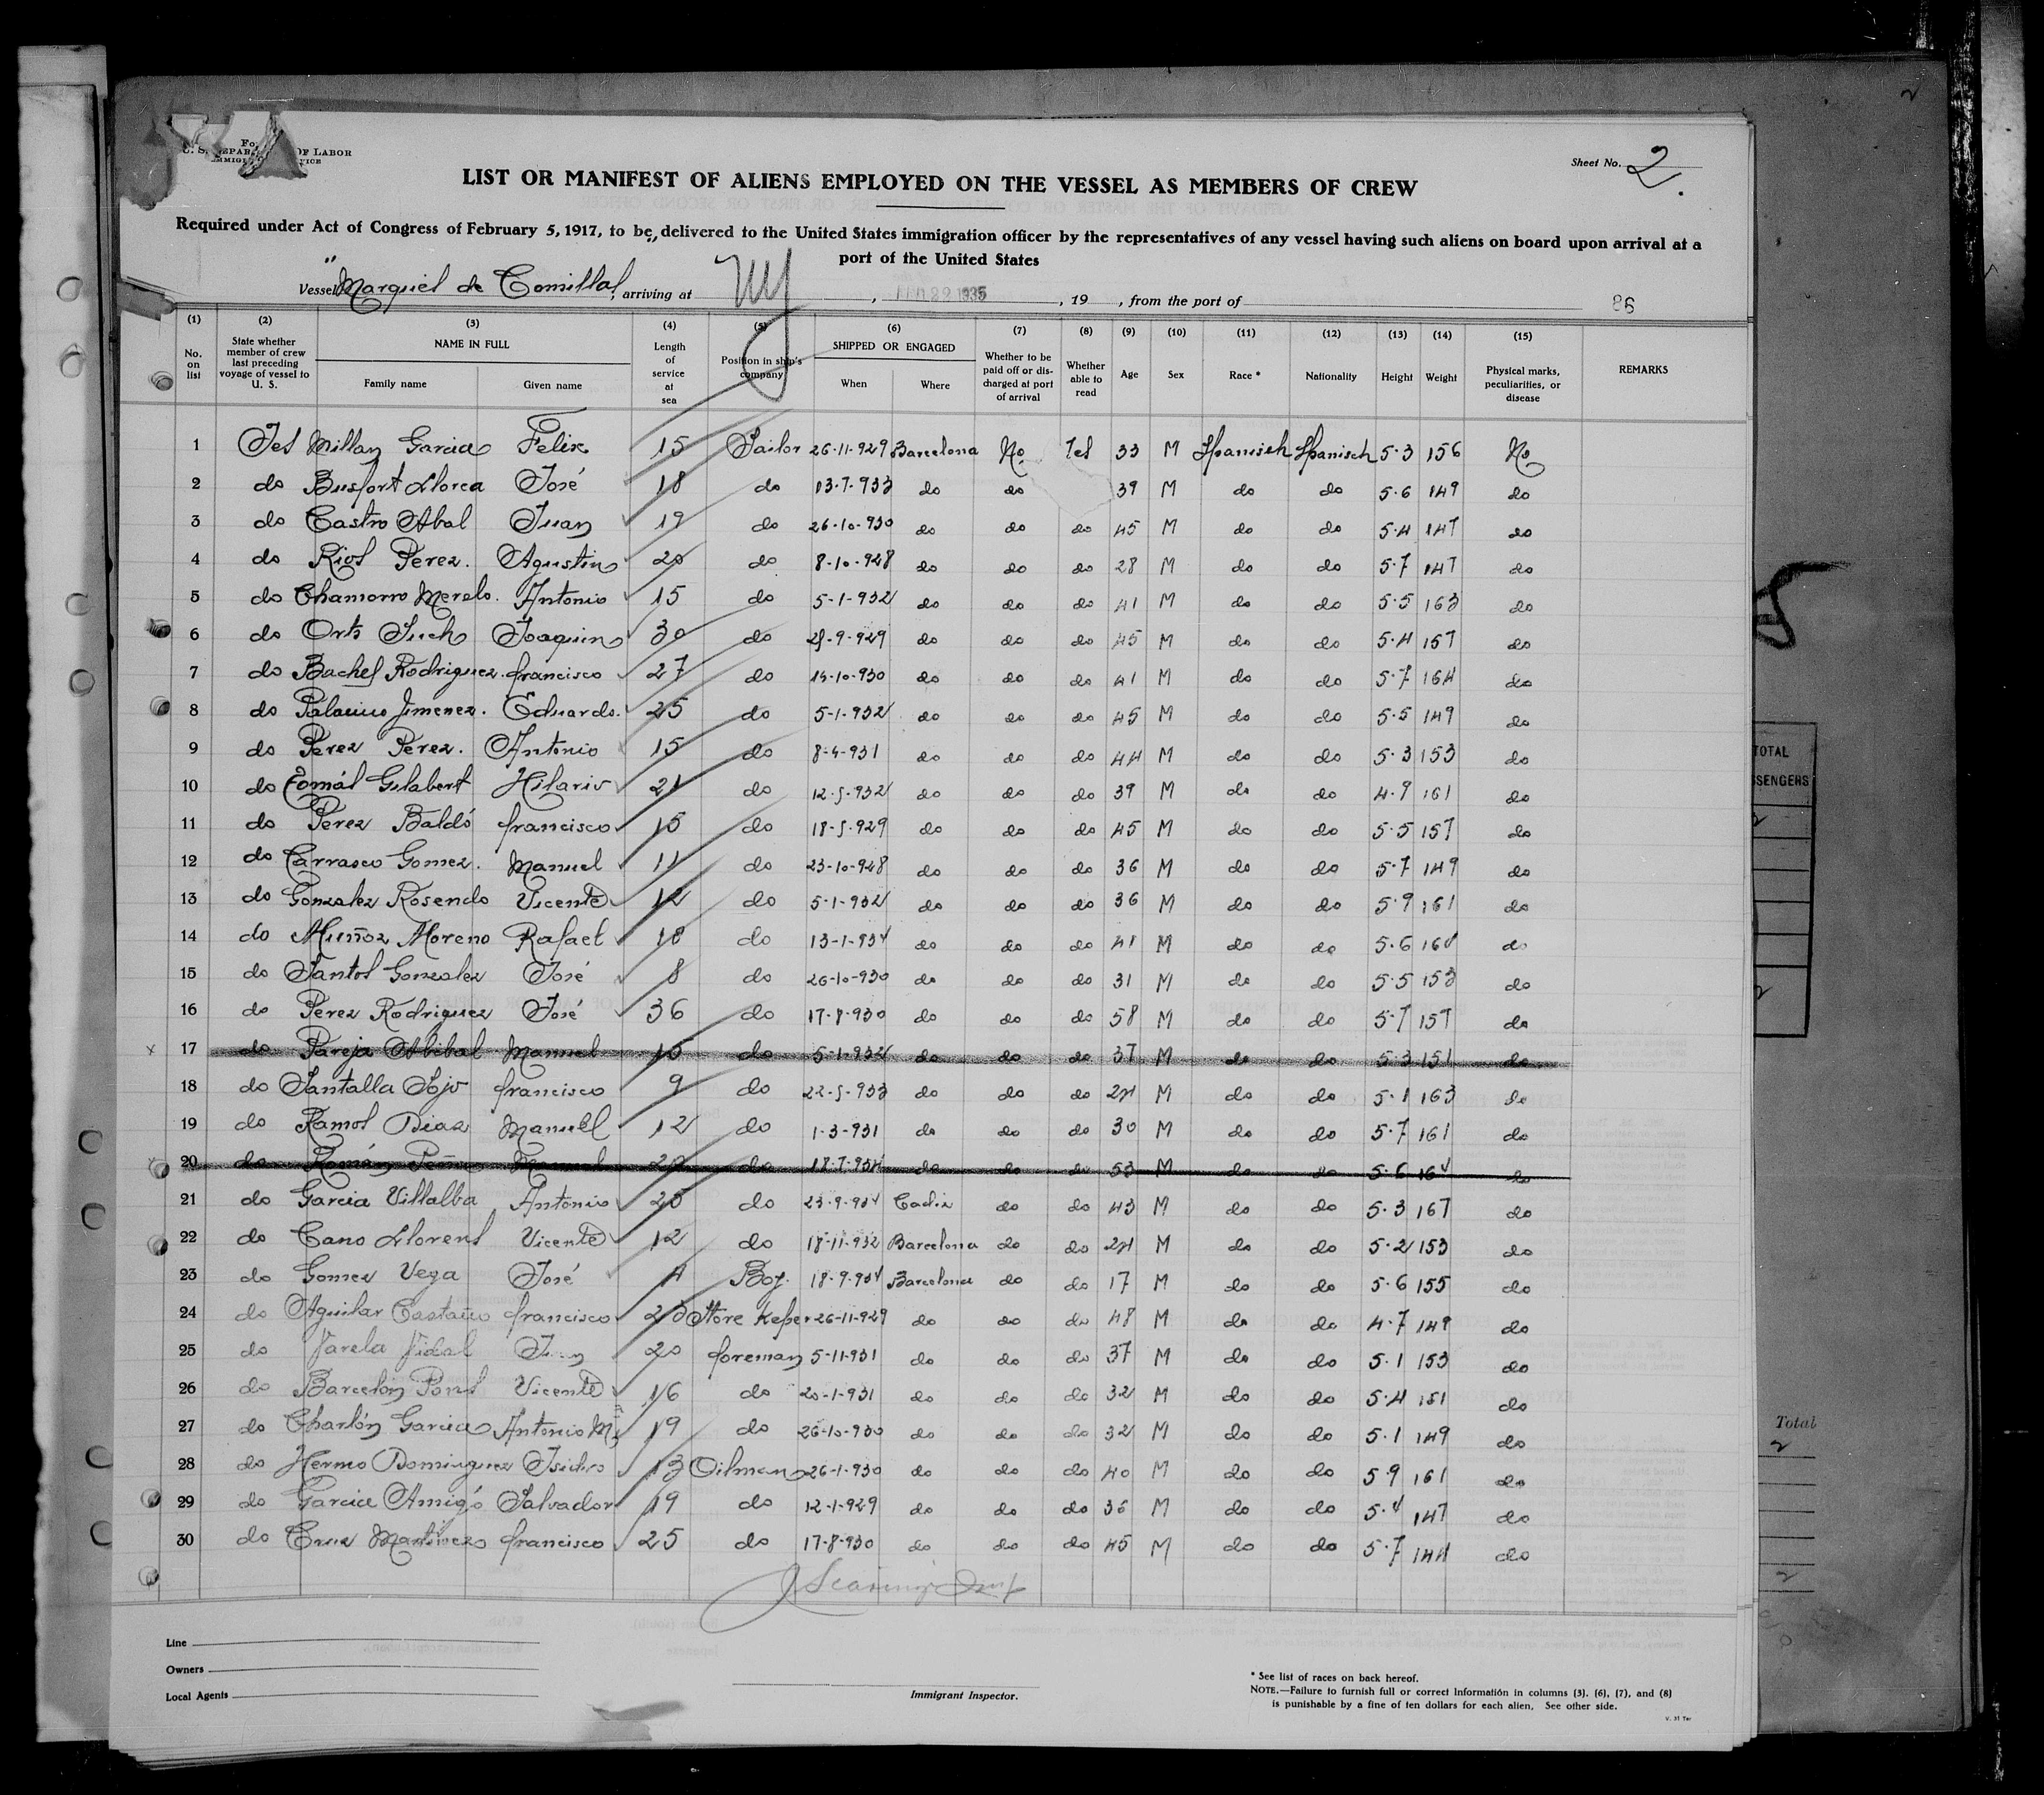 U. S. DEPAR OF LABOR
Sheet No. 2.
LIST OR MANIFEST OF ALIENS EMPLOYED ON THE VESSEL AS MEMBERS OF CREW
Required under Act of Congress of February 5, 1917, to be delivered to the United States immigration officer by the representatives of any vessel having such aliens on board upon arrival at a
port of the United States
Vessel "Marques de Comillas", arriving at NY, 29 1935, 19 , from the port of 86
(1) (2) (3) (4) (5) (6) (7) (8) (9) (10) (11) (12) (13) (14) (15)
No. on list State whether member of crew last preceding voyage of vessel to U. S. NAME IN FULL Family name Given name Length of service at sea Position in ship's company SHIPPED OR ENGAGED When Where Whether to be paid off or discharged at port of arrival Whether able to read Age Sex Race * Nationality Height Weight Physical marks, peculiarities, or disease REMARKS
1 Yes Millan Garcia Felix 15 Sailor 26-11-929 Barcelona No Yes 33 M Spanisch Spanisch 5·3 156 No
2 do Busfort Llorca José 18 do 13-7-933 do do 39 M do do 5·6 149 do
3 do Castro Abal Juan 19 do 26-10-930 do do do 45 M do do 5·4 147 do
4 do Rios Perez. Agustin 20 do 8-10-928 do do do 28 M do do 5·7 147 do
5 do Chamorro Merelo. Antonio 15 do 5-1-932 do do do 41 M do do 5·5 163 do
6 do Orts Such Joaquin 30 do 29-9-929 do do do 45 M do do 5·4 157 do
7 do Baches Rodriguez. francisco 27 do 14-10-930 do do do 41 M do do 5·7 164 do
8 do Palacius Jimenez. Eduardo. 25 do 5-1-932 do do do 45 M do do 5·5 149 do
9 do Perez Perez. Antonio 15 do 8-4-931 do do do 44 M do do 5·3 153 do
10 do Tomás Gilabert Hilario 21 do 12-5-932 do do do 39 M do do 4·9 161 do
11 do Perez Baldó francisco 15 do 18-5-929 do do do 45 M do do 5·5 157 do
12 do Carrasco Gomez. Manuel 11 do 23-10-928 do do do 36 M do do 5·7 149 do
13 do Gonzalez Rosendo Vicente 12 do 5-1-932 do do do 36 M do do 5·9 161 do
14 do Muñoz Moreno Rafael 18 do 13-1-934 do do do 41 M do do 5·6 164 do
15 do Santos Gonzalez José 8 do 26-10-930 do do do 31 M do do 5·5 153 do
16 do Perez Rodriguez José 36 do 17-8-930 do do do 58 M do do 5·7 157 do
x 17 do Pareja Abibal Manuel 15 do 5-1-932 do do do 37 M do do 5·3 151 do
18 do Santalla Sojo francisco 9 do 22-5-933 do do do 24 M do do 5·1 163 do
19 do Ramos Diaz Manuel 12 do 1-3-931 do do do 30 M do do 5·7 161 do
x 20 do Román Peña Manuel do 18-7-934 do do do 53 M do do 5·6 164 do
21 do Garcia Villalba Antonio 25 do 23-9-934 Cadiz do do 43 M do do 5·3 167 do
22 do Cano Llorens Vicente 12 do 18-11-932 Barcelona do do 24 M do do 5·2 153 do
23 do Gomez Vega José Boy. 18-9-934 Barcelona do do 17 M do do 5·6 155 do
24 do Aguilar Castaño francisco 25 Store Keper 26-11-929 do do do 48 M do do 4·7 149 do
25 do Varela Vidal Juan 20 foreman 5-11-931 do do do 37 M do do 5·1 153 do
26 do Barcelón Pons Vicente 16 do 20-1-931 do do do 32 M do do 5·4 151 do
27 do Charlón Garcia Antonio Mª 19 do 26-10-930 do do do 32 M do do 5·1 149 do
28 do Hermo Dominguez Isidro 13 Oilman 26-1-930 do do do 40 M do do 5·9 161 do
29 do Garcia Amigó Salvador 19 do 12-1-929 do do do 36 M do do 5·4 147 do
30 do Cruz Martinez francisco 25 do 17-8-930 do do do 45 M do do 5·7 144 do
Line
Owners
Local Agents
Immigrant Inspector.
* See list of races on back hereof.
NOTE.—Failure to furnish full or correct information in columns (3), (6), (7), and (8)
is punishable by a fine of ten dollars for each alien. See other side.
TOTAL
SSENGERS
Total
2
2